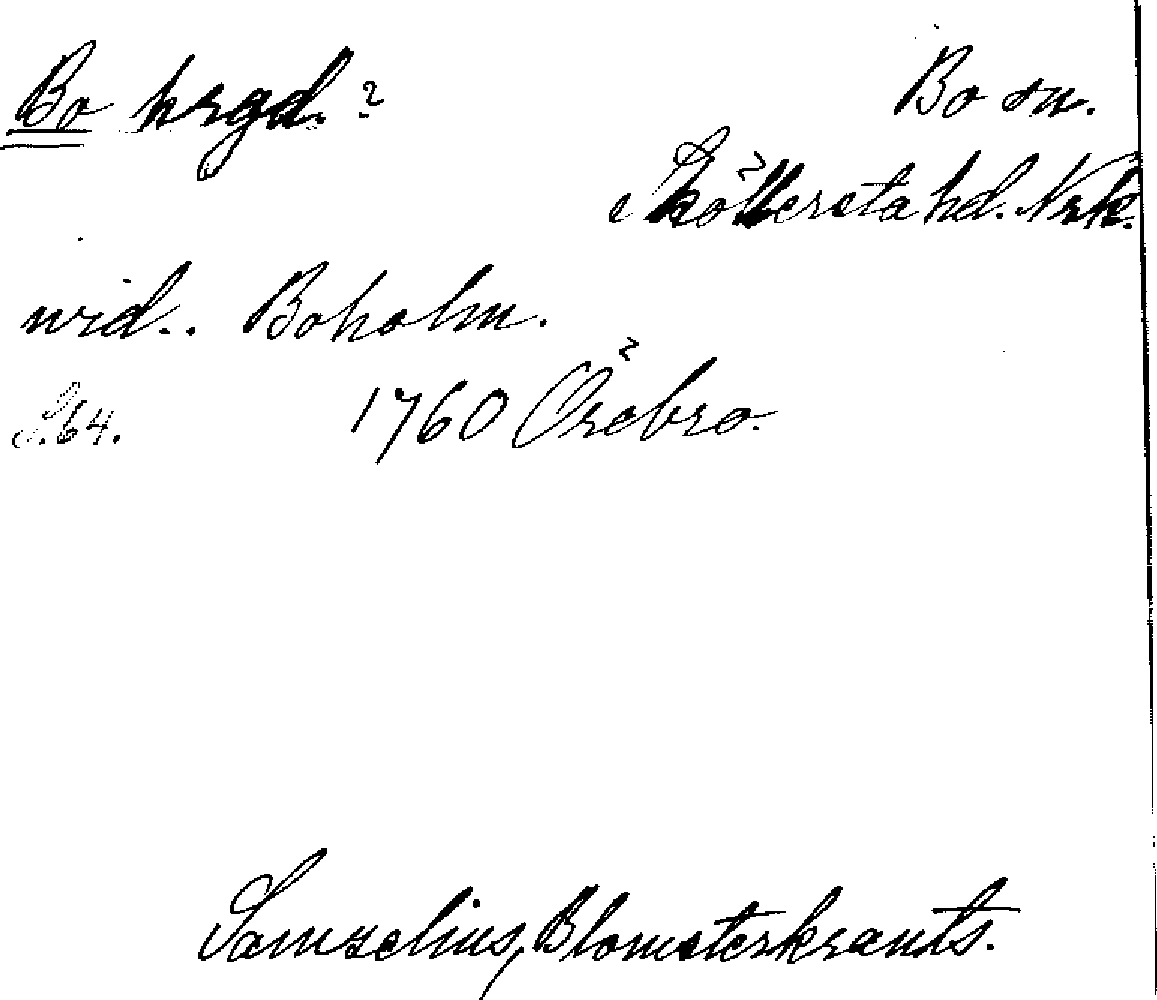 Bo hrgd.?
Bo sn.
Sköllersta hd. Nrk.
vid.. Boholm.
S.64. 1760 Örebro.
Samzelius, Blomsterkrants.